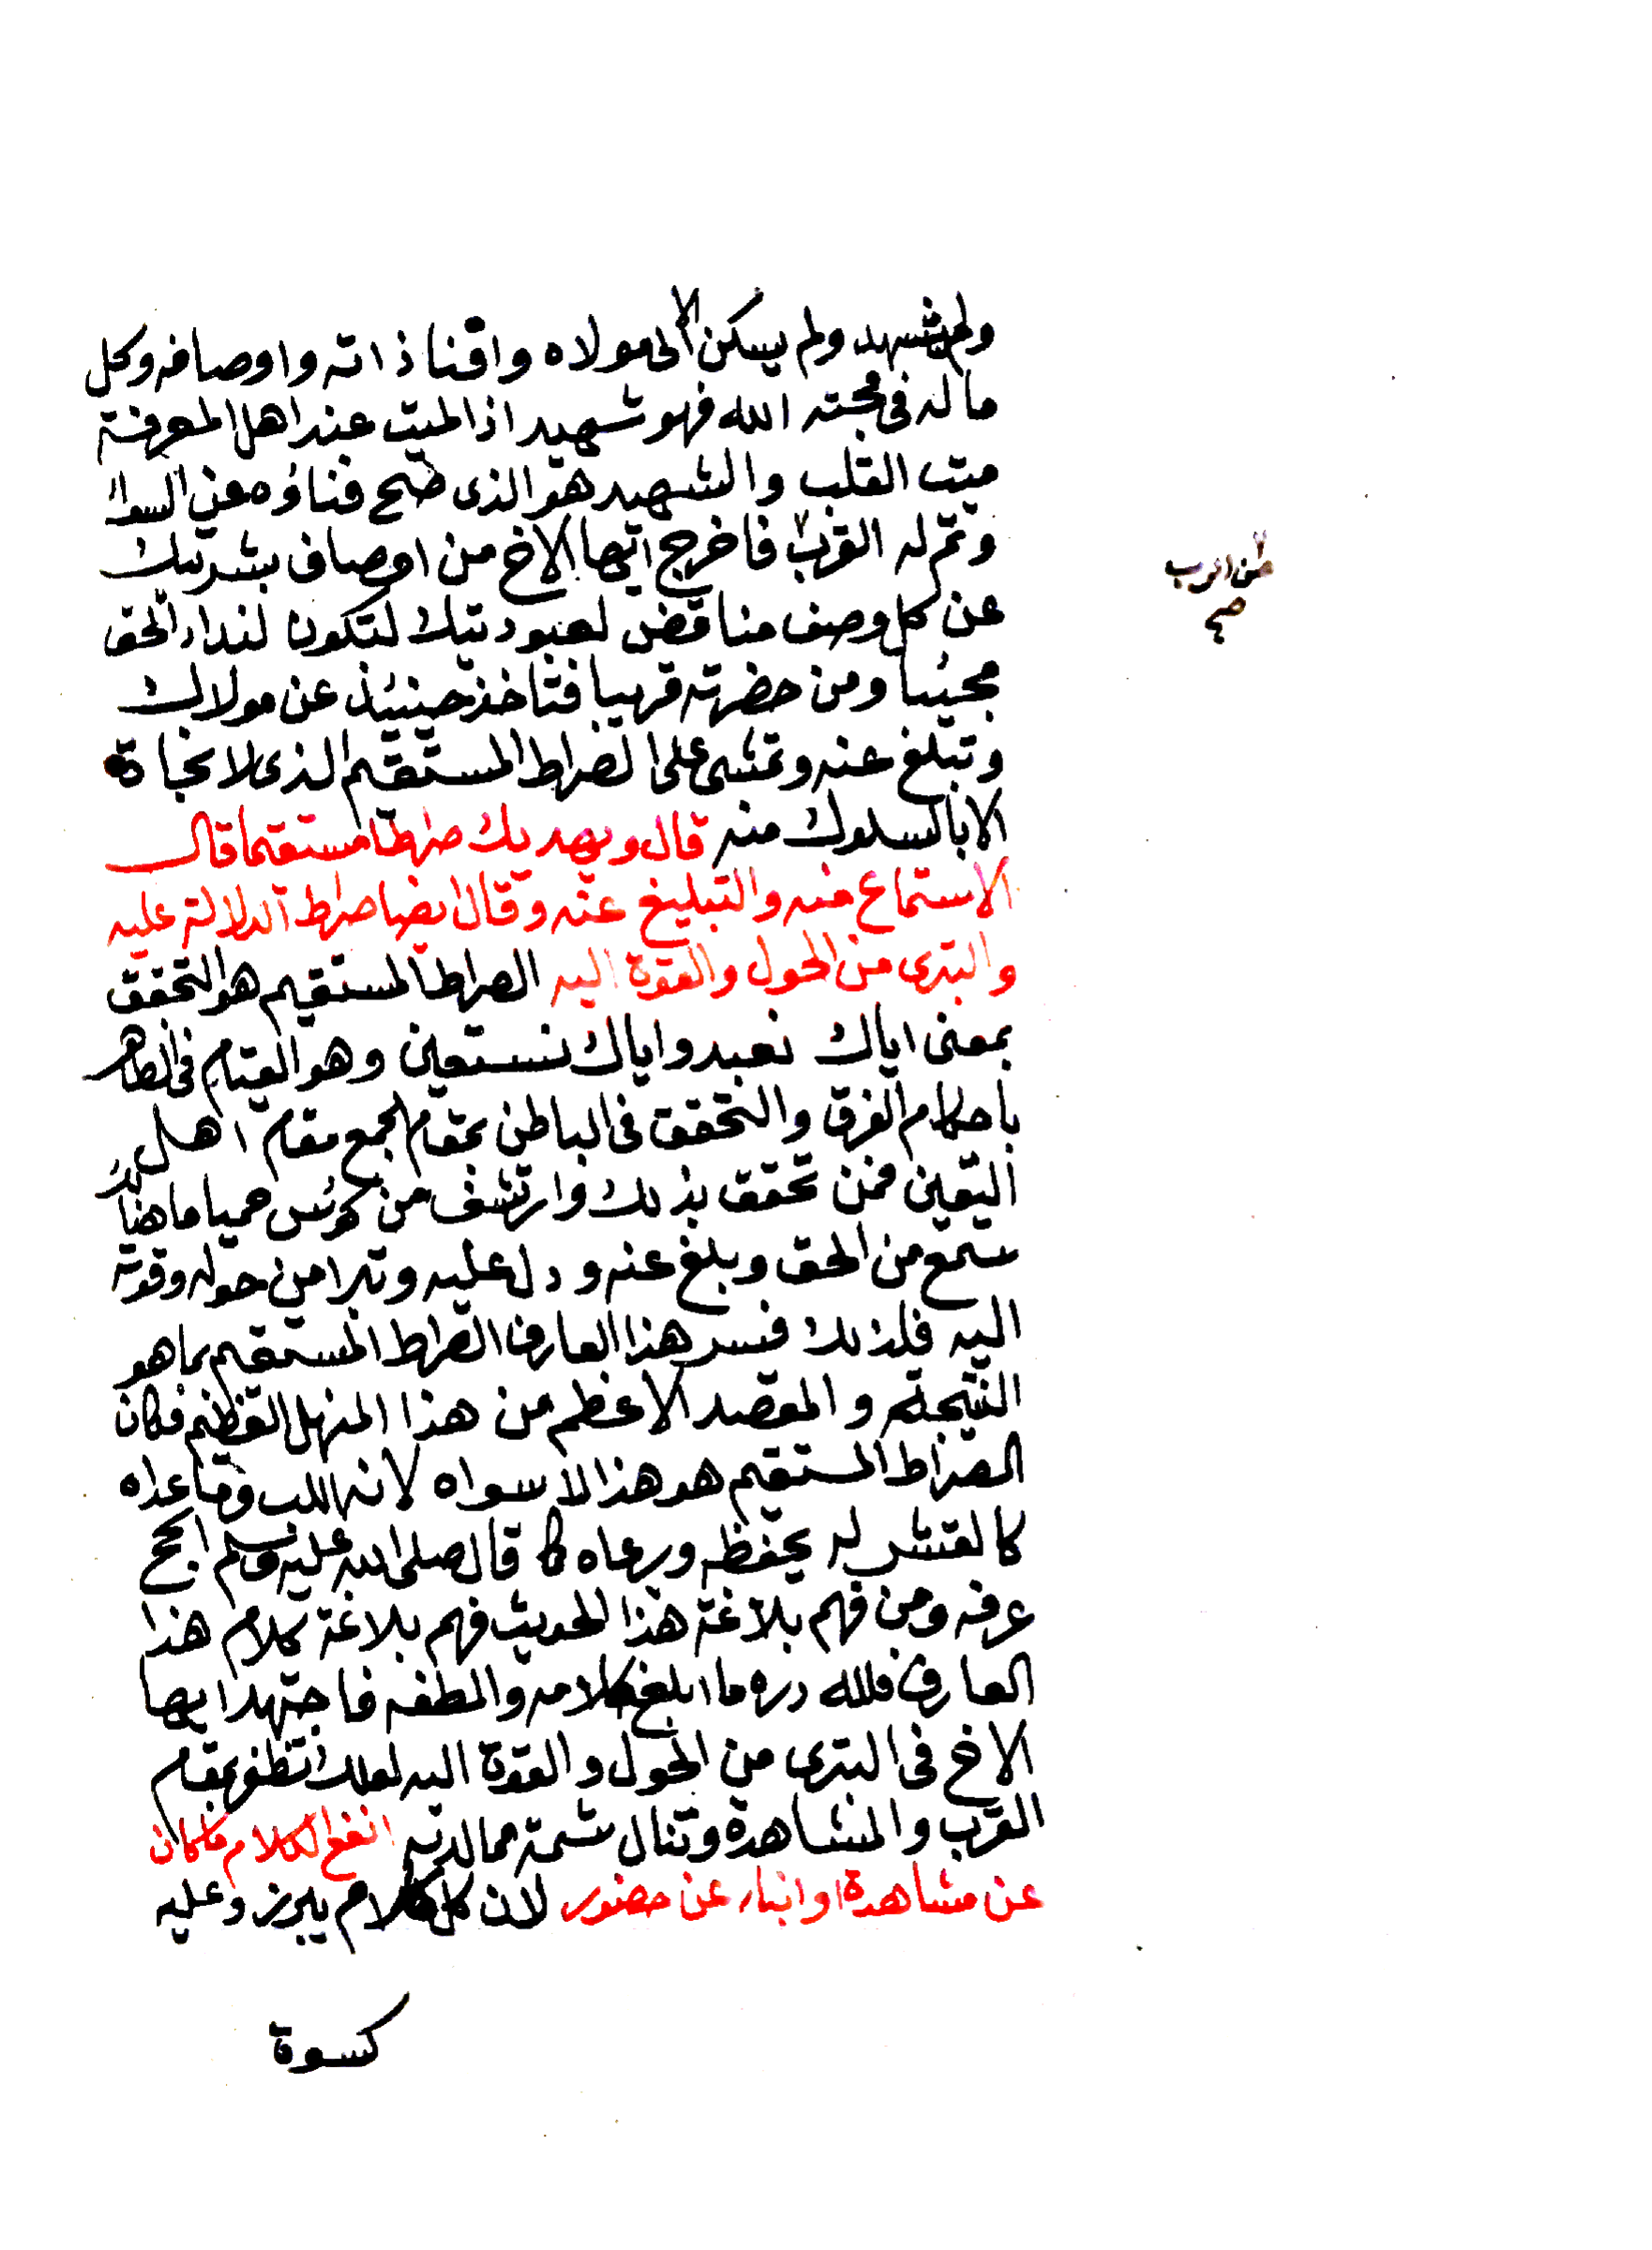 ولم يشهد ولم يسكن الا الى مولاه وافنا ذاته واوصافه وكل
ماله في محبته الله فهو شهيد اذ الميت عند اهل المعرفة
ميت القلب والشهيد هو الذي صح فناؤه عن السوا
وتم له القرب فاخرج ايها الاخ من اوصاف بشريتك
عن كل وصف مناقض لعبوديتك لتكون لنداء الحق
مجيبا ومن حضرته قريبا فتاخذ حينئذ عن مولاك
وتبلغ عنه وتمشى على الصراط المستقيم الذى لا نجاة
الا بالسلوك منه قال ويهديك صراطا مستقيما قال
الاستماع منه والتبليغ عنه وقال ايضا صراط الدلالة عليه
والتبرى من الحول والقوة اليه الصراط المستقيم هو التحقق
بمعنى اياك نعبد واياك نستعين وهو القيام في الظاهر
باحكام الفرق والتحقق في الباطن بمقام الجمع مقام اهل
اليقين فمن تحقق بذلك وارتشف من كؤس حميا ما هنالك
سمع من الحق وبلغ عنه ودل عليه وتبرا من حوله وقوته
اليه فلذلك فسر هذا العارف الصراط المستقيم بما هو
النتيجة والمقصد الاعظم من هذا المنهل العظيم فكان
الصراط المستقيم هو هذا لا سواه لانه اللب وما عداه
كالقشر له يحفظه ويرعاه كما قال صلى الله عليه وسلم الحج
عرفه ومن فهم بلاغة هذا الحديث فهم بلاغة كلام هذا
العارف فلله دره ما ابلغ كلامه والطفه فاجتهد ايها
الاخ في التبرى من الحول والقوة اليه لعلك تظفر بمقام
القرب والمشاهدة وتنال شمة مما لديه انفع الكلام ما كان
عن مشاهدة او انباء عن حضور لان كل كلام يبرز وعليه
كسوة
من الرب
صح